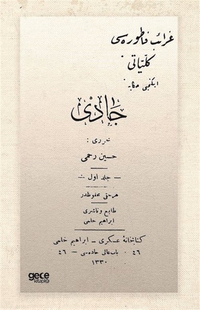 غرائب فاطوره‌سی
كلیاتی
ایكنجی حكایه
جادی
محرری :
حسین رحمی
— جلد اول —
هر حقی محفوظدر
طابع و ناشری
ابراهیم حلمی
كتابخانهٔ عسكری – ابراهیم حلمی
٤٦ – باب عالی جاده‌سی – ٤٦
١٣٣٠
gece